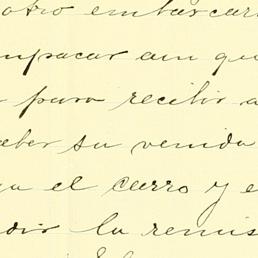 otro embarcar
mpacar aun qu
para recibir a
aber su venida
ga el carro y e
dir la remis